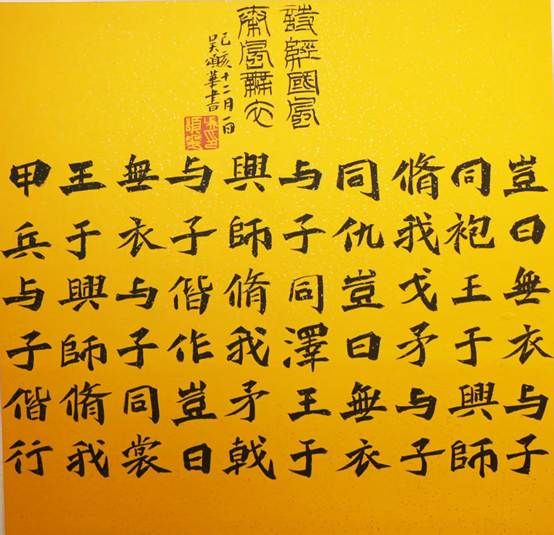 詩經國風
秦風無衣
己亥十二月一日
吴華書
豈曰無衣与子
同袍王于興師
脩我戈矛与子
同仇豈曰無衣
与子同澤王于
興師脩我矛戟
与子偕作豈曰
無衣与子同裳
王于興師脩我
甲兵与子偕行